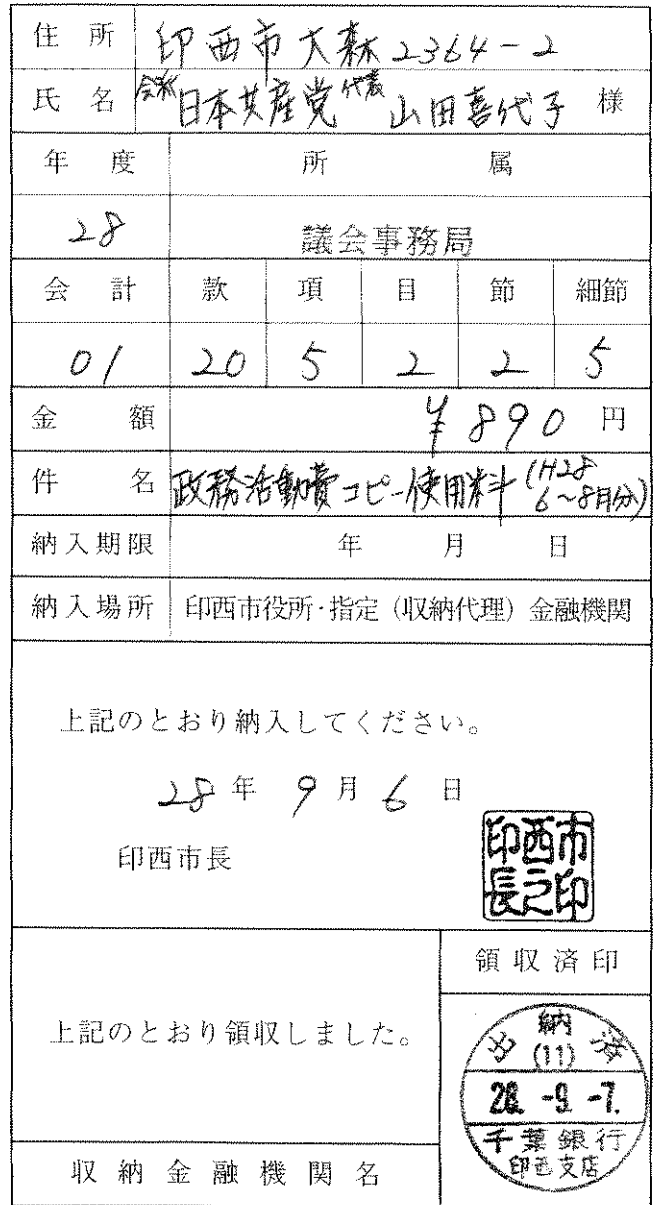 住所 印西市大森2364-2
氏名 会派 日本共産党 代表 山田喜代子 様
年度 所属
28 議会事務局
会計 款 項 目 節 細節
01 20 5 2 2 5
金額 ¥890円
件名 政務活動費コピー使用料 (H28 6~8月分)
納入期限 年 月 日
納入場所 印西市役所・指定(収納代理)金融機関
上記のとおり納入してください。
28年 9月 6日
印西市長
印西市長之印
領収済印
上記のとおり領収しました。
出納済
(11)
28.-9.-7.
千葉銀行
印西支店
収納金融機関名